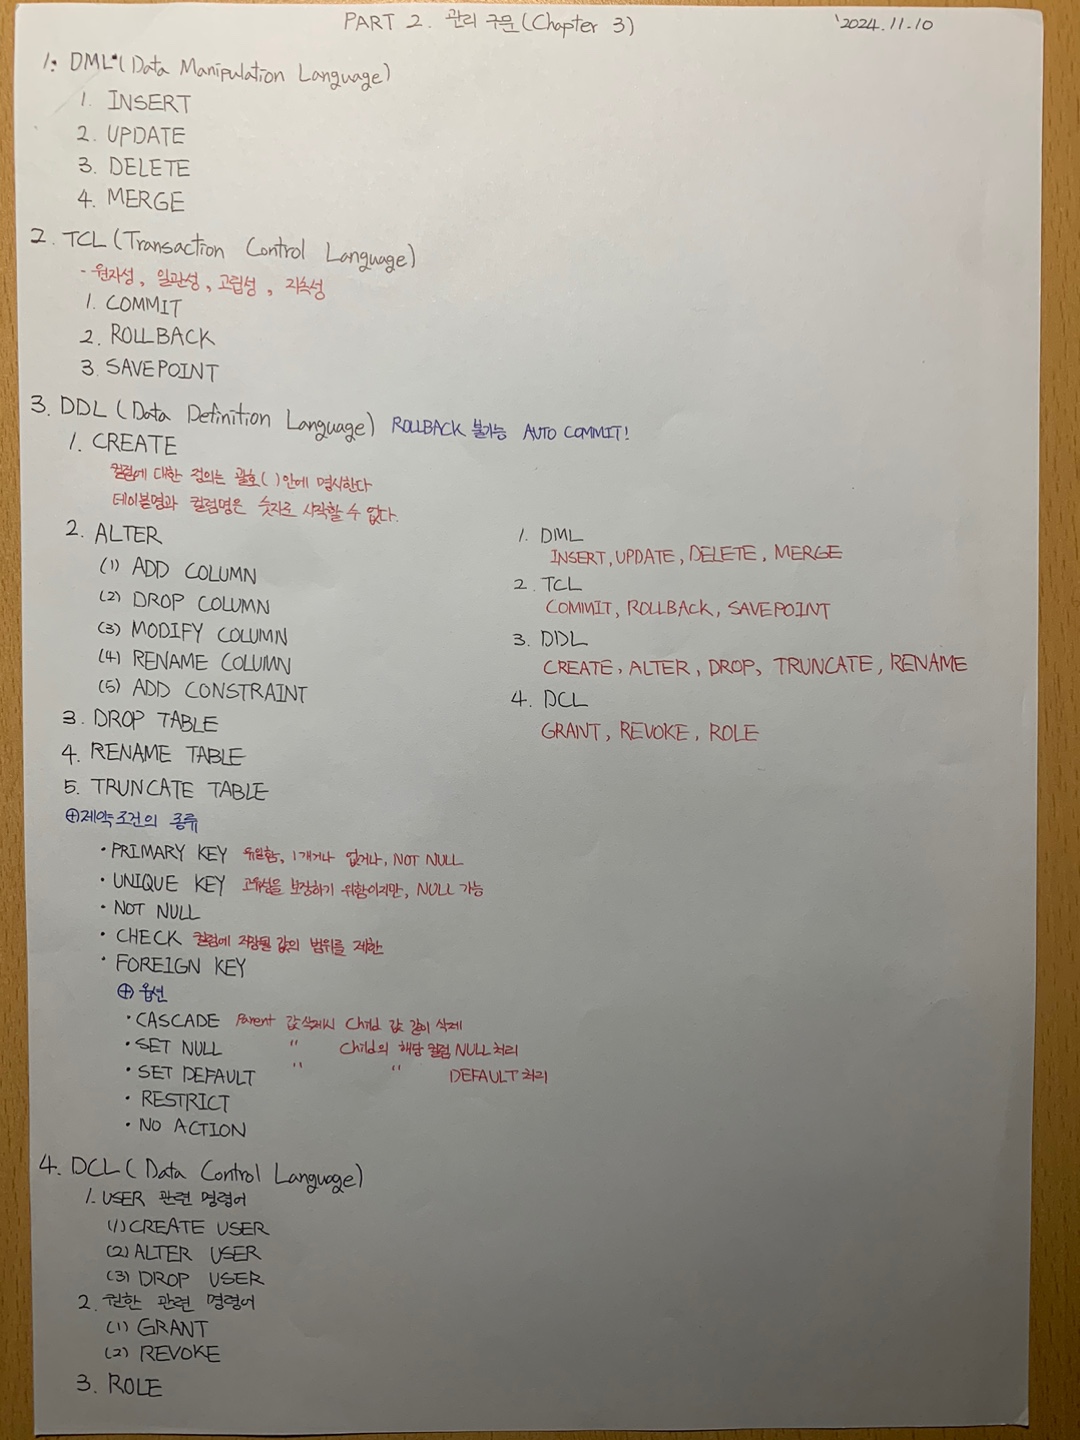 PART 2. 관리 구문(Chapter 3)
'2024.11.10
1. DML(Data Manipulation Language)
1. INSERT
2. UPDATE
3. DELETE
4. MERGE
2. TCL(Transaction Control Language)
- 원자성, 일관성, 고립성, 지속성
1. COMMIT
2. ROLLBACK
3. SAVEPOINT
3. DDL(Data Definition Language) ROLLBACK 불가능 AUTO COMMIT!
1. CREATE
컬럼에 대한 정의는 괄호( )안에 명시한다
테이블명과 컬럼명은 숫자로 시작할 수 없다.
2. ALTER
(1) ADD COLUMN
(2) DROP COLUMN
(3) MODIFY COLUMN
(4) RENAME COLUMN
(5) ADD CONSTRAINT
3. DROP TABLE
4. RENAME TABLE
5. TRUNCATE TABLE
⊕제약조건의 종류
· PRIMARY KEY 유일함, 1개거나 없거나, NOT NULL
· UNIQUE KEY 고유성을 보장하기 위함이지만, NULL 가능
· NOT NULL
· CHECK 컬럼에 저장될 값의 범위를 제한
· FOREIGN KEY
⊕ 옵션
· CASCADE Parent 값삭제시 Child 값 같이 삭제
· SET NULL " Child의 해당 컬럼 NULL 처리
· SET DEFAULT " " DEFAULT 처리
· RESTRICT
· NO ACTION
4. DCL(Data Control Language)
1. USER 관련 명령어
(1) CREATE USER
(2) ALTER USER
(3) DROP USER
2. 권한 관련 명령어
(1) GRANT
(2) REVOKE
3. ROLE
1. DML
INSERT, UPDATE, DELETE, MERGE
2. TCL
COMMIT, ROLLBACK, SAVEPOINT
3. DDL
CREATE, ALTER, DROP, TRUNCATE, RENAME
4. DCL
GRANT, REVOKE, ROLE